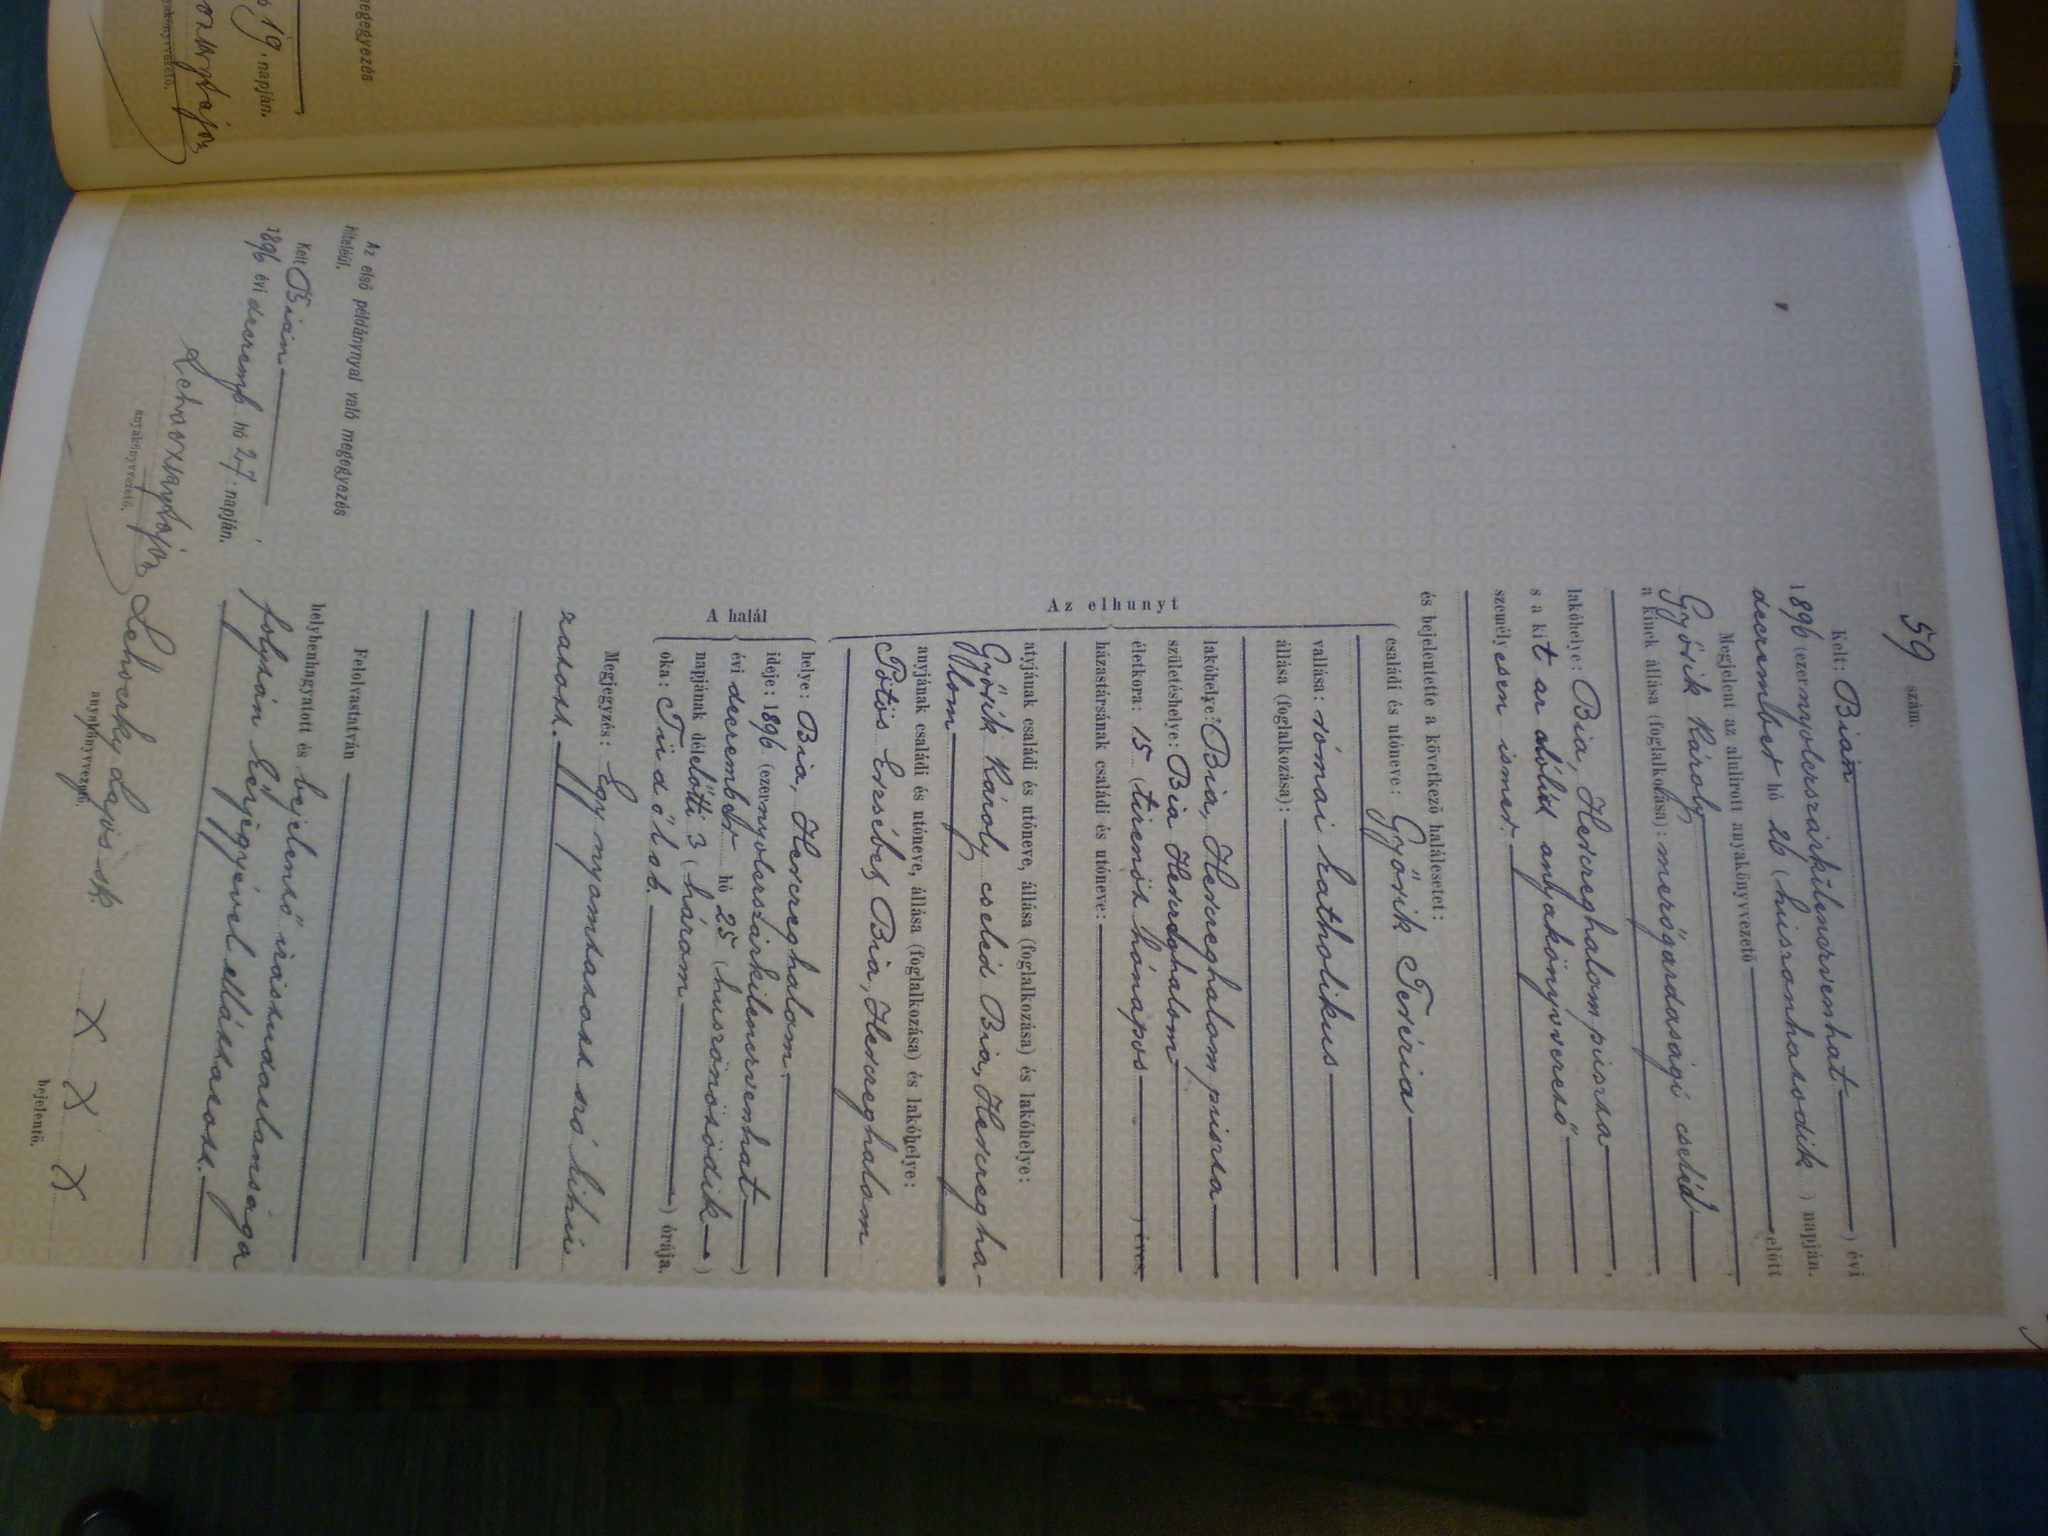 59 szám.
Kelt: Bián ) évi
1896 (ezernyolczszázkilenczvenhat
deczember hó 26 (huszonhatodik ) napján.
Megjelent az alulirott anyakönyvvezető előtt
Győrik Károly
a kinek állása (foglalkozása): mezőgazdasági cseléd
lakóhelye: Bia, Herczeghalom puszta
s a kit az alólid anyakönyvvezető
személyesen ismer.
és bejelentette a következő halálesetet:
Az elhunyt
családi és utóneve: Győrik Terézia
vallása: római katholikus
állása (foglalkozása):
lakóhelye: Bia, Herczeghalom puszta
születéshelye: Bia Herczeghalom
életkora: 15 (tizenöt hónapos ) éves.
házastársának családi és utóneve:
atyjának családi és utóneve, állása (foglalkozása) és lakóhelye:
Győrik Károly cseléd Bia, Herczegha-
lom
anyjának családi és utóneve, állása (foglalkozása) és lakóhelye:
Pötös Erzsébet, Bia, Herczeghalom
A halál
helye: Bia, Herczeghalom.
ideje: 1896 (ezernyolczszázkilenczvenhat )
évi deczember hó 25 (huszonötödik )
napjának délelőtti 3 (három ) órája.
oka: Tüdőlob.
Megjegyzés: Egy nyomtatott szó kihú-
zatott.
Felolvastatván
helybenhagyatott és bejelentő irástudatlansága
folytán kézjegyével elláttatott.
Lehoczky Lajos sk.
anyakönyvvezető.
X X X
bejelentő.
Az első példánynyal való megegyezés
hiteléül.
Kelt Bián
1896 évi deczemb hó 27 napján.
Lehoczky Lajos
anyakönyvvezető.
megegyezés
19 napján.
anyakönyvvezető.